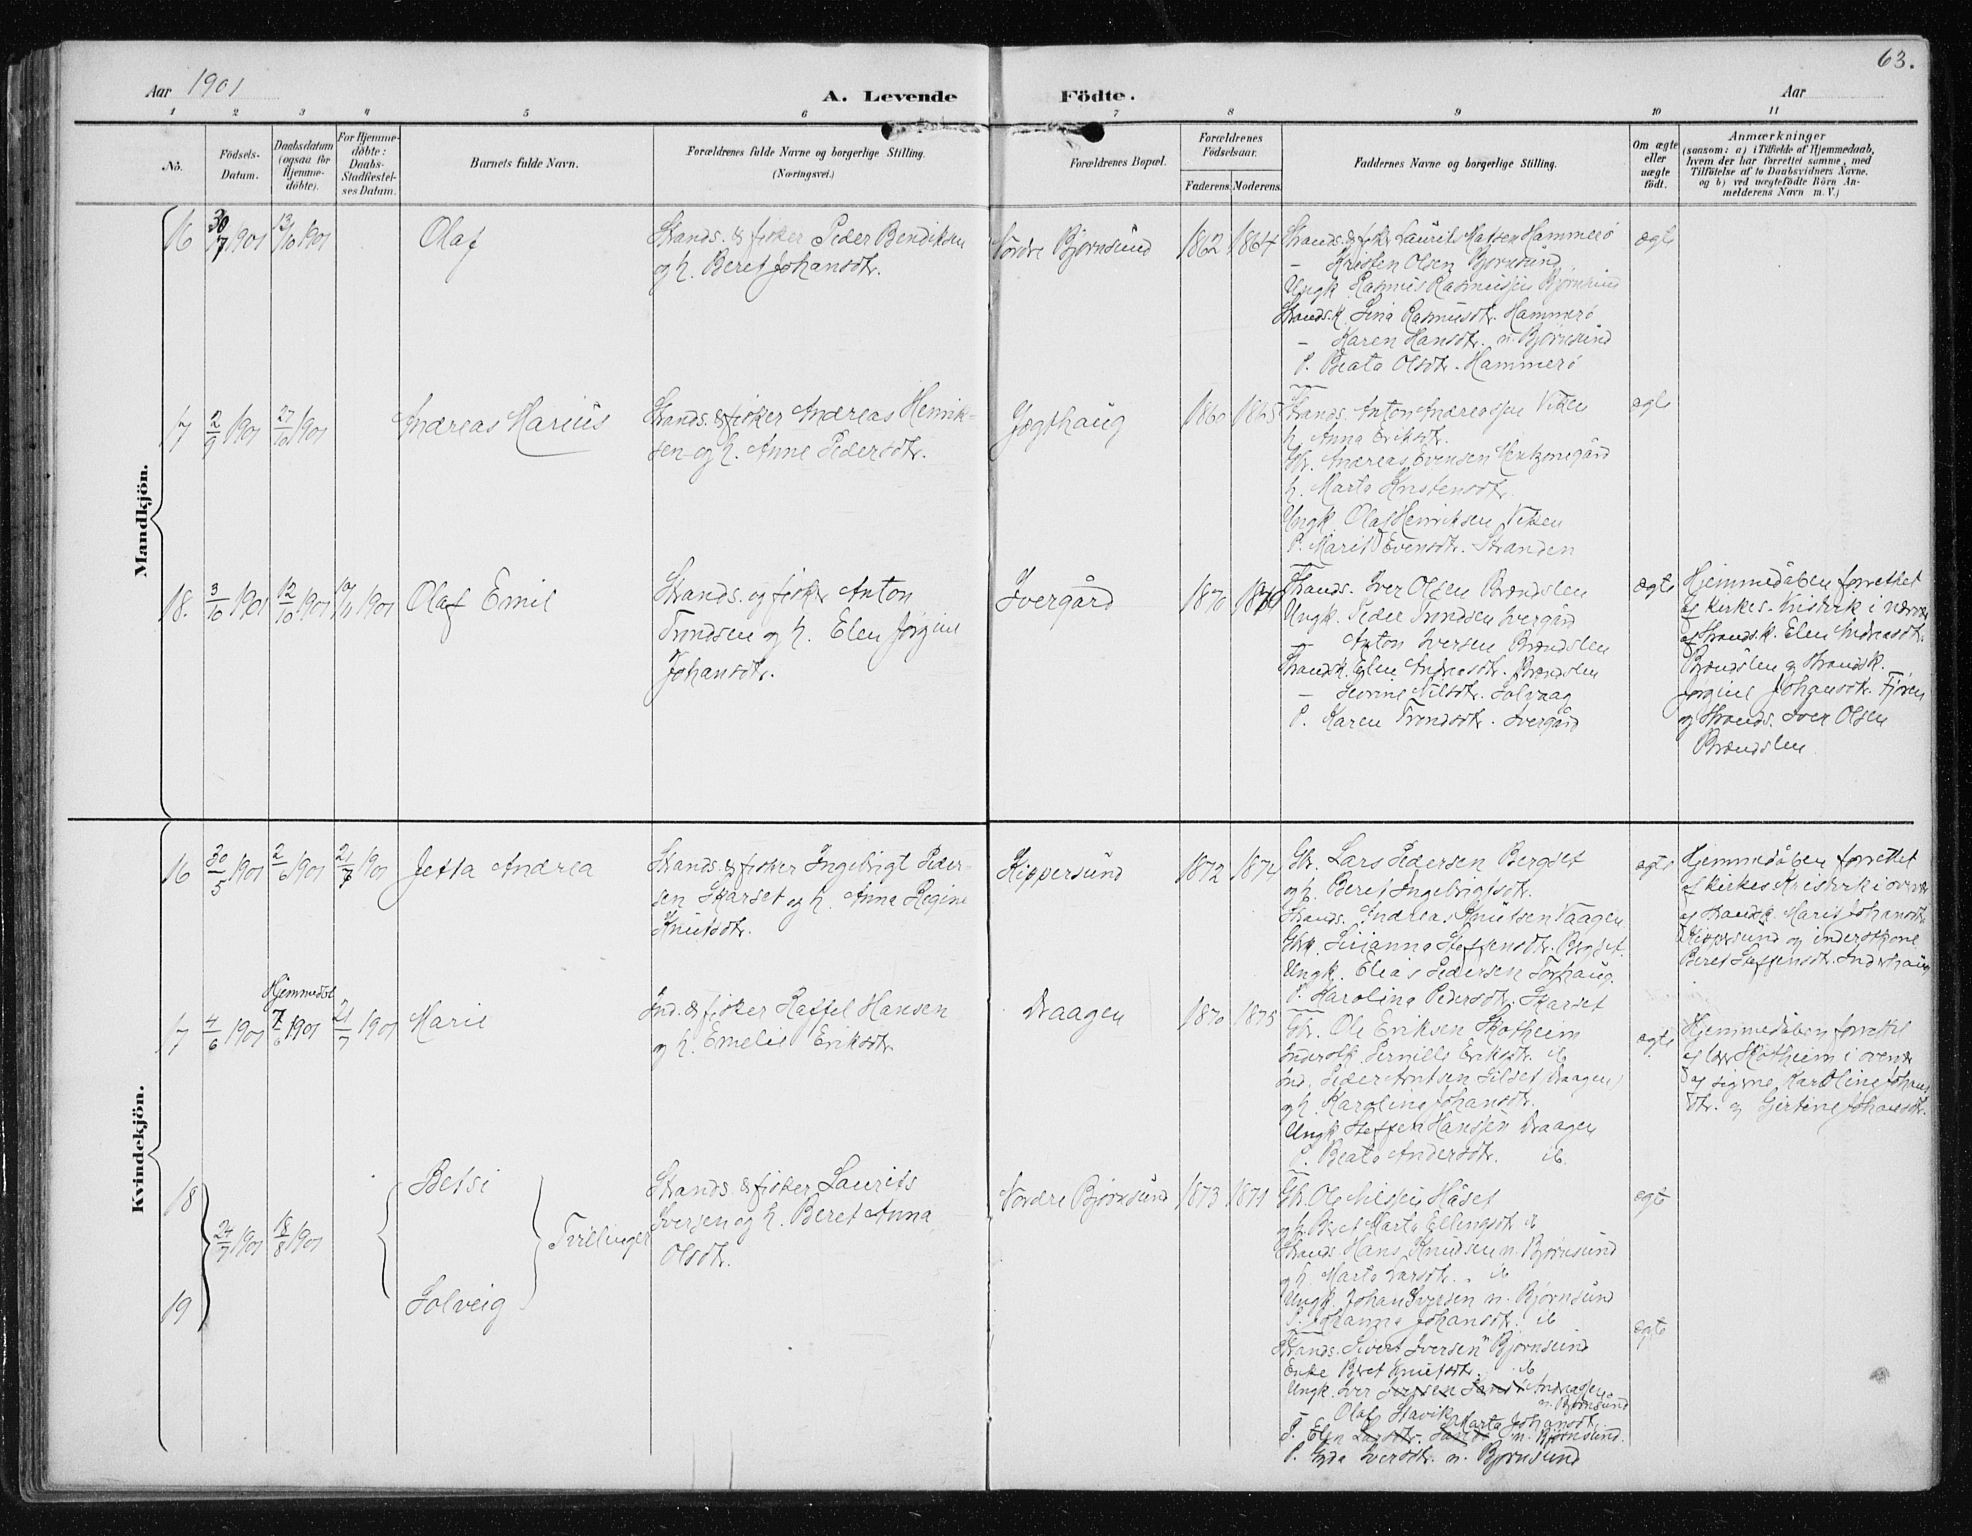 63.
Aar 1901
A. Levende Födte.
Aar
1 2 3 4 5 6 7 8 9 10 11
No.
Födsels-Datum.
Daabsdatum (ogsaa for Hjemme-döbte).
For Hjemme-döbte: Daabs-Stadfæstel-ses Datum.
Barnets fulde Navn.
Forældrenes fulde Navne og borgerlige Stilling. (Næringsvei.)
Forældrenes Bopæl.
Forældrenes Födselsaar.
Faderens. Moderens.
Faddernes Navne og borgerlige Stilling.
Om ægte eller uægte födt.
Anmærkninger
(saasom: a) i Tilfælde af Hjemmedaab, hvem der har forrettet samme, med Tilföielse af to Daabsvidners Navne, og b) ved uægtefödte Börn An-melderens Navn m. V.)
Mandkjön.
16 30/7 1901 13/10 1901 Olaf
Strands. & fisker Peder Bendiksen
og h. Beret Johansdtr.
Nordre Bjørnsund 1862 1864
Strands. & fisker Laurits Matsen Hammerø
– Kristen Olsen Bjørnsund
Ungk. Rasmus Rasmussen Bjørnsund
Strandsk. Lina Rasmusdtr. Hammerø
– Karen Hansdtr. n. Bjørnsund
P. Beata Olsdtr. Hammerø
ægte
17 2/9 1901 27/10 1901 Andreas Marius
Strands. & fisker Andreas Henrik-
sen og h. Anne Pedersdtr.
Jægthaug 1860 1865
Strands. Anton Andreassen Viken
h. Anna Eriksdtr.
Gbr. Andreas Evensen
h. Marta Kristensdtr.
Ungk. Olaf Henriksen Viken
P. Marit Evensdtr. Stranden
ægte
18. 3/10 1901 12/10 1901 1901 Olaf Emil
Strands. og fisker Anton
Trondsen og h. Elen Jørgine
Johansdtr.
Ivergård 1870
Strands. Iver Olsen Brændslen
Ungk. Peder Trondsen Ivergård
– Anton Iversen Brændslen
Strandsk. Elen Andreasdtr. Brændslen
– Nilsdtr. Solvaag
P. Karen Trondsdtr. Ivergård
ægte
Hjemmedåben forrettet
af kirkes. Kristvik i nærvær
af Strandsk. Elen Andreasdtr.
Brændslen og Strandsk.
Jørgine Johansdtr.
og Strands. Iver Olsen
Brændslen
Kvindekjön.
16 30/5 1901 2/6 1901 21/7 1901 Jetta Andrea
Strands. & fisker Ingebrigt Peder-
sen Skarset og h. Anna Regine
Knutsdtr.
Kippersund 1872 1874
Gbr. Lars Pedersen Bergset
og h. Beret Ingebrigtsdtr.
Strands. Andreas Knutsen Vaagen
Gbk. Steffensdtr. Bergset
Ungk. Elias Pedersen
P. Karoline Pedersdtr. Skarset
ægte
Hjemmedåben forrettet
af Kirkes Kristvik i overvær
af Strandsk. Marit Johansdtr.
Kippersund og inderstkone
Beret Steffensdtr. Inderhaug
17 4/6 1901 Hjemmedøbt 7/6 1901 21/7 1901 Marie
Ind. & fisker Raffel Hansen
og h. Emelie Eriksdtr.
Draagen 1870 1875
Gbr. Ole Eriksen Skotheim
Pernille Eriksdtr. ib
Ind. Peder Arntsen Silset (Draagen)
og h. Karoline Johansdtr.
Ungk. Steffen Hanssen Draagen
P. Beate Andersdtr. ib
ægte
Hjemmedåben forrettet
af lær. Skotheim i overvær
af pigerne Karoline Johans-
dtr. og Gjertine Johansdtr.
18 Betsi
24/7 1901 18/8 1901 Tvillinger
19 Solveig
Strands. & fisker Laurits
Iversen og h. Beret Anna
Olsdtr.
Nordre Bjørnsund 1873 1871
Gbr. Ole Nilssen Håset
og h. Beret Marta Ellingsdtr. ib
Strands. Hans Knudsen n. Bjørnsund
og h. Marta Larsdtr. ib
Ungk. Johan Iversen n. Bjørnsund
P. Johanna Johansdtr. ib
ægte
Strands. Sivert Iversen Bjørnsund
Enke Beret Knutsdtr. ib
Ungk. Iver Andreassen
n. Bjørnsund
– Olaf Stavik
P. Elen Marta Johansdt. n. Bjørnsund.
P. Gyda Iversdtr. n. Bjørnsund
ægte